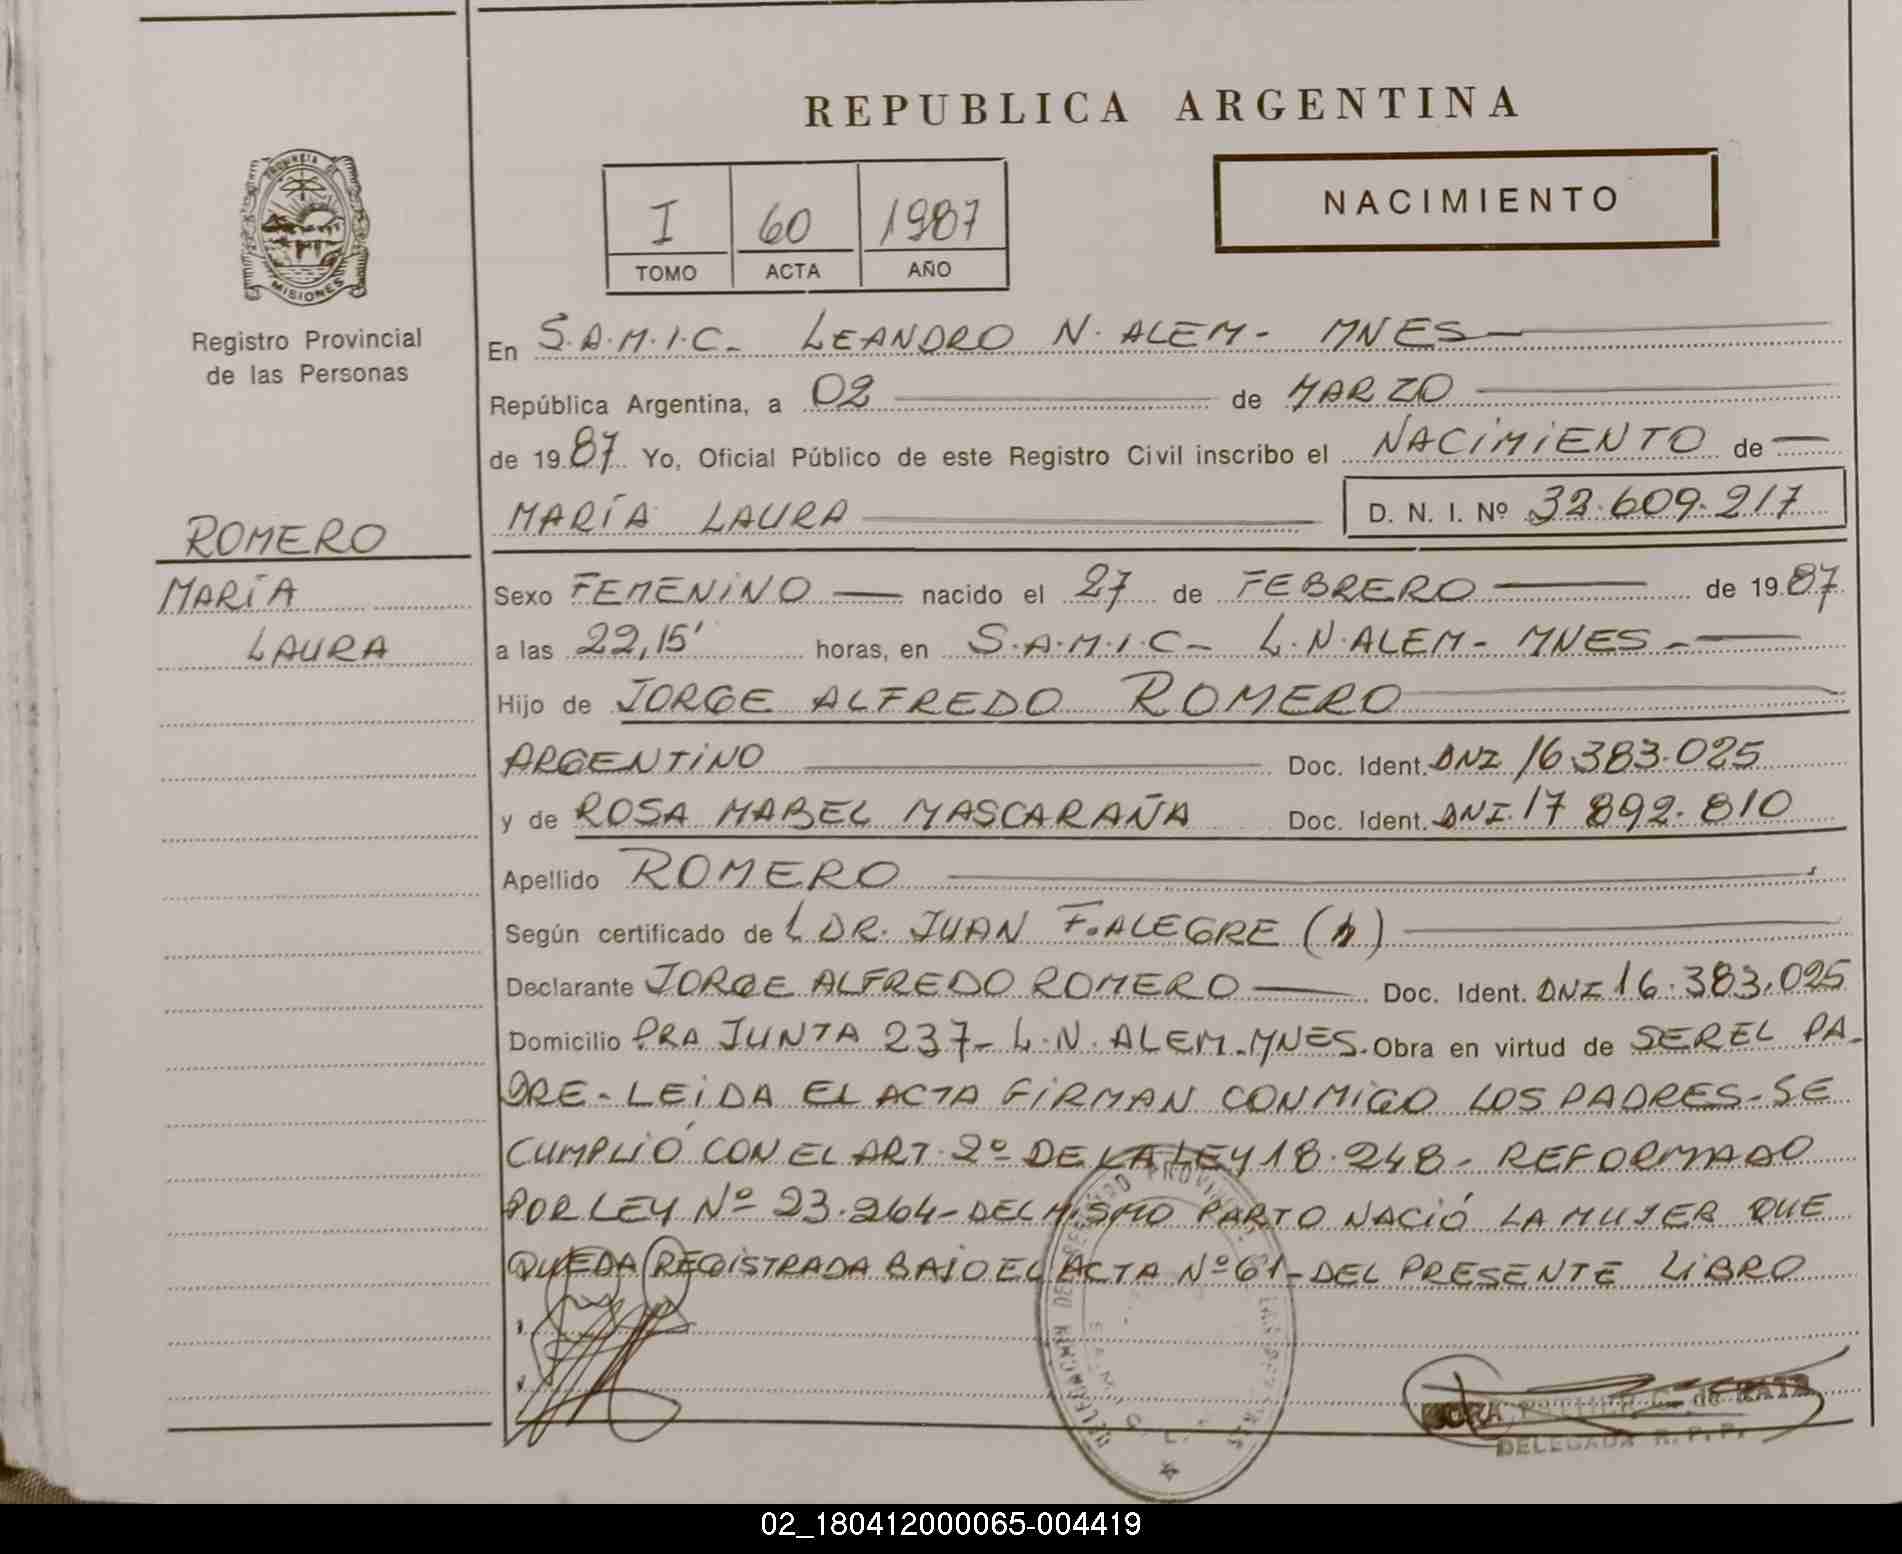 REPUBLICA ARGENTINA
NACIMIENTO
I 60 1987
TOMO ACTA AÑO
PROVINCIA DE
MISIONES
Registro Provincial
de las Personas
ROMERO
MARÍA
LAURA
En S.A.M.I.C- LEANDRO N. ALEM- MNES
República Argentina, a 02 de MARZO
de 1987 Yo, Oficial Público de este Registro Civil inscribo el NACIMIENTO de
MARÍA LAURA D. N. I. Nº 32.609.217
Sexo FEMENINO nacido el 27 de FEBRERO de 1987
a las 22,15' horas, en S.A.M.I.C- L.N.ALEM- MNES-
Hijo de JORGE ALFREDO ROMERO
ARGENTINO Doc. Ident. DNI 16.383.025
y de ROSA MABEL MASCARAÑA Doc. Ident. DNI.17 892.810
Apellido ROMERO
Según certificado de L DR. JUAN F. ALEGRE (h)
Declarante JORGE ALFREDO ROMERO Doc. Ident. DNI 16.383.025
Domicilio PRA JUNTA 237- L.N. ALEM-MNES. Obra en virtud de SER EL PA-
DRE-LEIDA EL ACTA FIRMAN CONMIGO LOS PADRES-SE
CUMPLIÓ CON EL ART. 2º DE LA LEY 18.248- REFORMADO
POR LEY Nº 23.264-DEL MISMO PARTO NACIÓ LA MUJER QUE
QUEDA REGISTRADA BAJO EL ACTA Nº 61-DEL PRESENTE LIBRO
DELEGADA R. P. P.
02_180412000065-004419